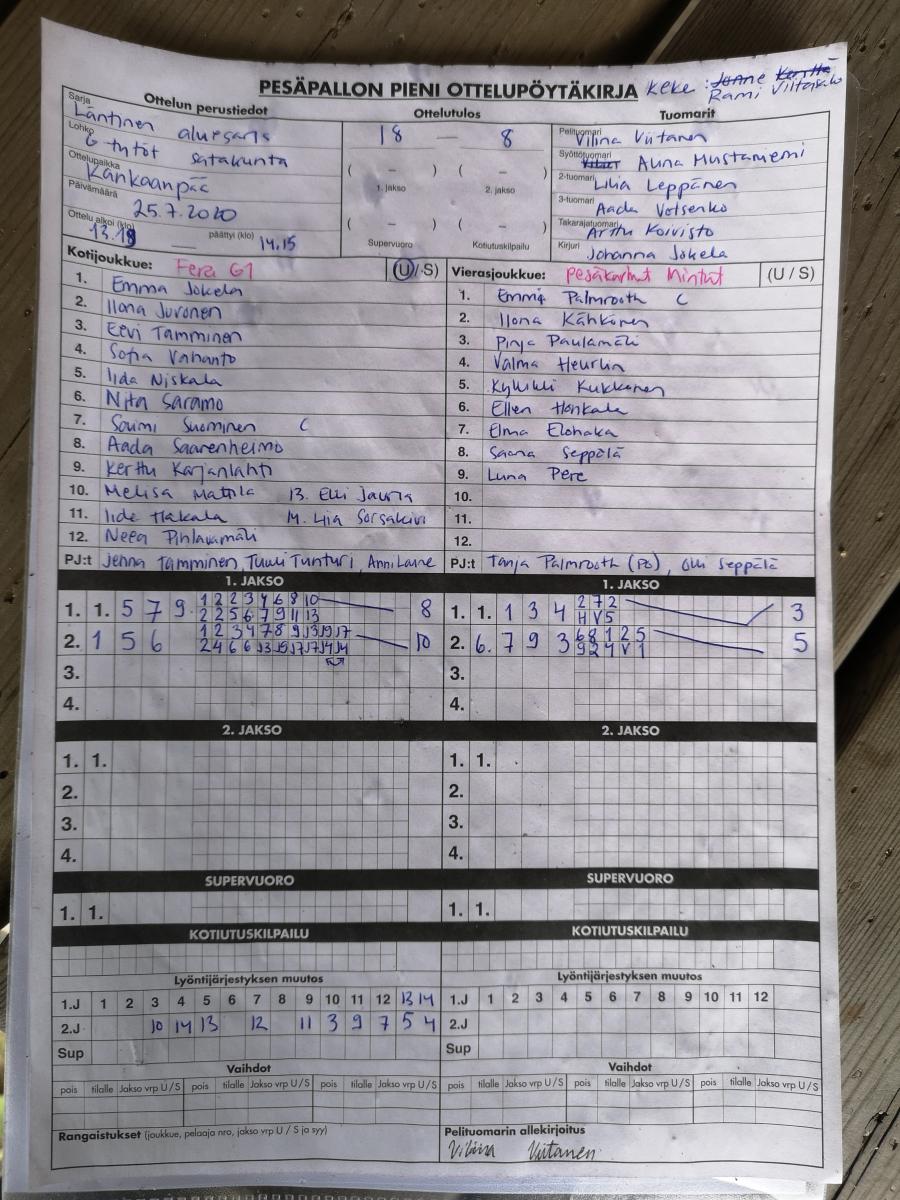 PESÄPALLON PIENI OTTELUPÖYTÄKIRJA
Keke: Rami Viltasalo
Ottelun perustiedot
Ottelutulos
Tuomarit
Sarja Läntinen aluesarja
Lohko G tytöt satakunta
Ottelupaikka Kankaanpää
Päivämäärä 25.7.2020
Ottelu alkoi (klo) 13.18 päättyi (klo) 14.15
18 — 8
( – ) ( – )
1. jakso 2. jakso
( – ) ( – )
Supervuoro Kotiutuskilpailu
Pelituomari Vilina Viitanen
Syöttötuomari Auna Mustaniemi
2-tuomari Lilia Leppänen
3-tuomari Aada Votsenko
Takarajatuomari Arttu Koivisto
Kirjuri Johanna Jokela
Kotijoukkue: Fera G1 (U / S)
1. Emma Jokela
2. Ilona Juvonen
3. Eevi Tamminen
4. Sofia Vahanto
5. Iida Niskala
6. Niita Saramo
7. Soumi Suominen C
8. Aada Saarenheimo
9. Kerttu Karjanlahti
10. Melisa Mattila 13. Elli Jauria
11. Iida Hakala 14. Liia Sorsakivi
12. Neea Pihlavamäki
PJ:t Jenna Tamminen, Tuuli Tunturi, Anni Laine
Vierasjoukkue: Pesäkarhut Mintut (U / S)
1. Emmi Palmrooth C
2. Ilona Kähkönen
3. Pinja Paulamäki
4. Valma Heurlin
5. Kyllikki Kukkonen
6. Ellen Honkala
7. Elma Elohaka
8. Saana Seppälä
9. Luna Pere
10.
11.
12.
PJ:t Tanja Palmrooth (PJ), Olli Seppälä
1. JAKSO
1. 1. 5 7 9 1 2 2 3 4 6 8 10 8
2 2 5 6 7 9 11 13
2. 1 5 6 1 2 3 4 7 8 9 13 15 17 10
2 4 6 6 13 15 17 17 14 14
3.
4.
1. JAKSO
1. 1. 1 3 4 2 7 2 3
H V 5
2. 6. 7 9 3 6 8 1 2 5 5
9 2 4 V 1
3.
4.
2. JAKSO
1. 1.
2.
3.
4.
2. JAKSO
1. 1.
2.
3.
4.
SUPERVUORO
1. 1.
SUPERVUORO
1. 1.
KOTIUTUSKILPAILU
KOTIUTUSKILPAILU
Lyöntijärjestyksen muutos
1.J 1 2 3 4 5 6 7 8 9 10 11 12 13 14
2.J 10 14 13 12 11 3 9 7 5 4
Sup
Lyöntijärjestyksen muutos
1.J 1 2 3 4 5 6 7 8 9 10 11 12
2.J
Sup
Vaihdot
pois tilalle Jakso vrp U / S pois tilalle Jakso vrp U / S pois tilalle Jakso vrp U / S
Vaihdot
pois tilalle Jakso vrp U / S pois tilalle Jakso vrp U / S pois tilalle Jakso vrp U / S
Rangaistukset (joukkue, pelaaja nro, jakso vrp U / S ja syy)
Pelituomarin allekirjoitus
Vilina Viitanen